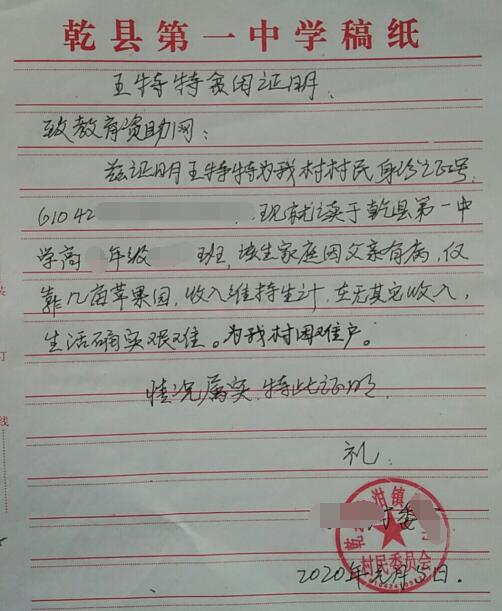 乾县第一中学稿纸
王特特贫困证明.
致教育资助网:
兹证明王特特为我村村民身份证号
61042 .现就读于乾县第一中
学高 年级 班,该生家庭因父亲有病,仅
靠几亩苹果园,收入维持生计,在无其它收入,
生活确实艰难。为我村困难户。
情况属实.特此证明.
礼.
村委
2020年元月5日.
乾县 泔镇
村民委员会
装
订
线